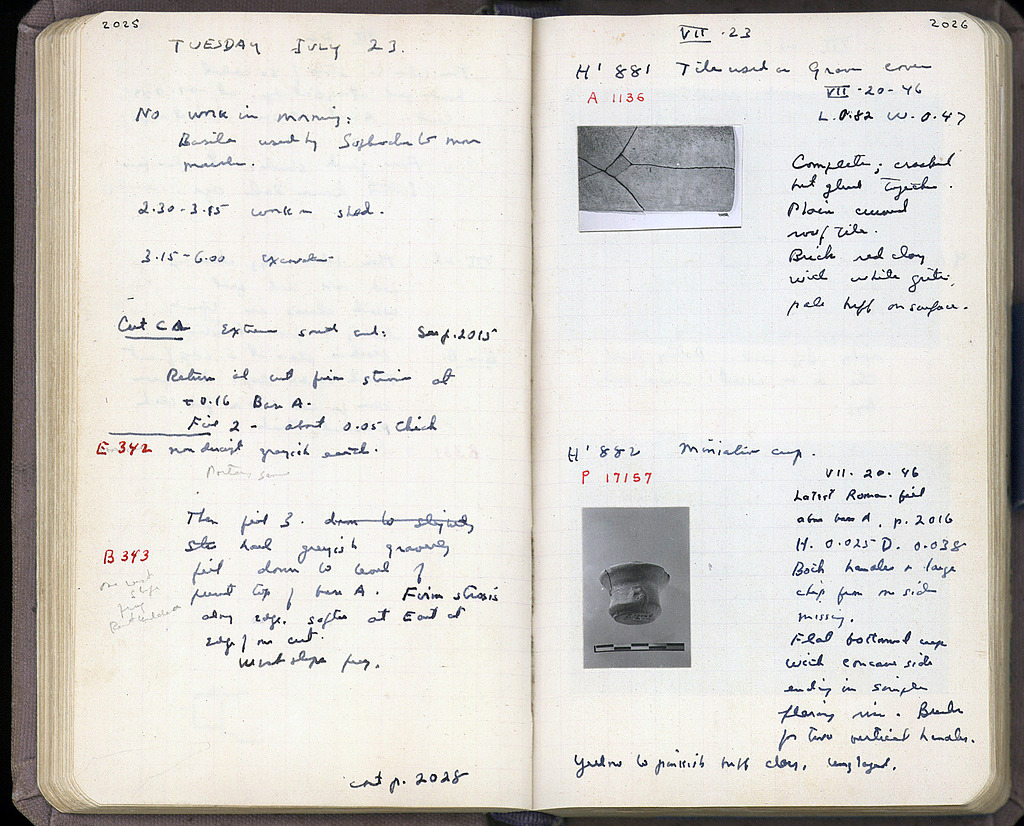 2025
TUESDAY JULY 23.
No work in morning:
Basile used by Sophocles to move
marble.
2.30-3.15 work in shed.
3.15-6.00 excavate
Cut CA Extreme south end: See p. 2015
Return at cut from stosis at
+0.16 Base A.
Fill 2 - about 0.05 thick
E 342 nondescript greyish earth.
Then fill 3. down to slightly
hard greyish gravelly
B 343
fill down to level of
present top of base A. Firm stosis
along edge, softer at East at
edge of our cut.
West slope
cont p. 2028
2026
VII .23
H' 881 Tile used as Grave cover
A 1136
VII -20-46
L. 0.82 W. 0.47
Complete; cracked
but glued together.
Plain curved
roof tile.
Brick red clay
with white grits,
pale buff on surface.
H' 882 Miniature cup.
P 17157
VII. 20. 46
Latest Roman fill
above base A, p. 2016
H. 0.025 D. 0.038
Both handles & large
chip from one side
missing.
Flat bottomed cup
with concave side
ending in simple
flaring rim. Breaks
for two vertical handles.
Yellow to pinkish buff clay, unglazed.